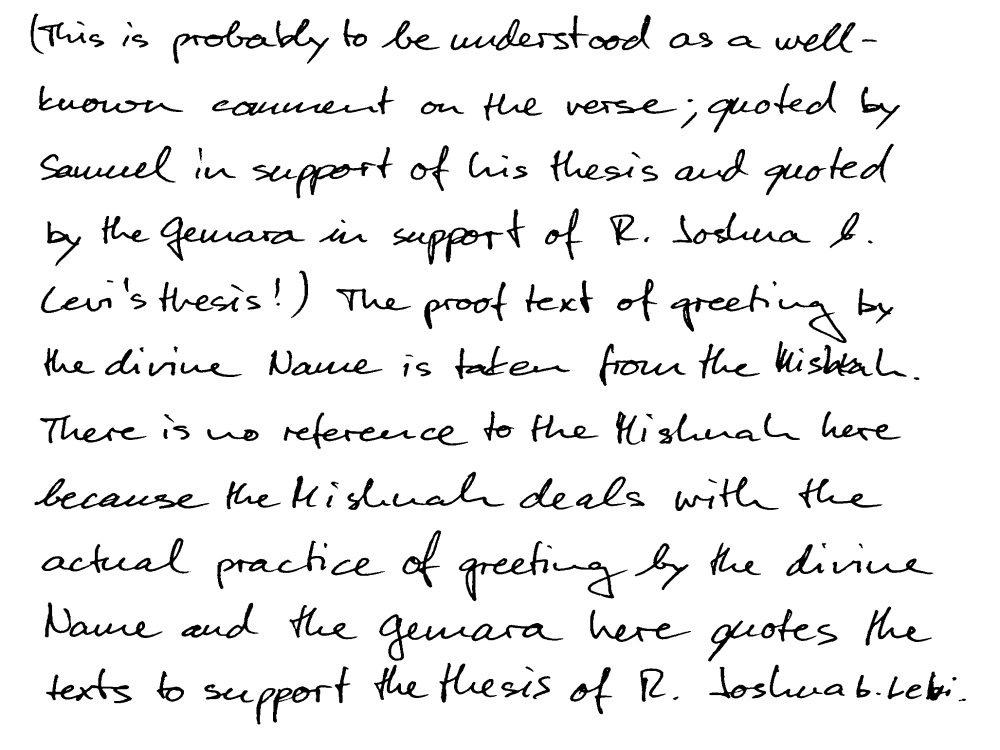 (This is probably to be understood as a well-
known comment on the verse; quoted by
Samuel in support of his thesis and quoted
by the Gemara in support of R. Joshua b.
Levi's thesis!) The proof text of greeting by
the divine Name is taken from the Mishnah.
There is no reference to the Mishnah here
because the Mishnah deals with the
actual practice of greeting by the divine
Name and the Gemara here quotes the
texts to support the thesis of R. Joshua b. Lebi.